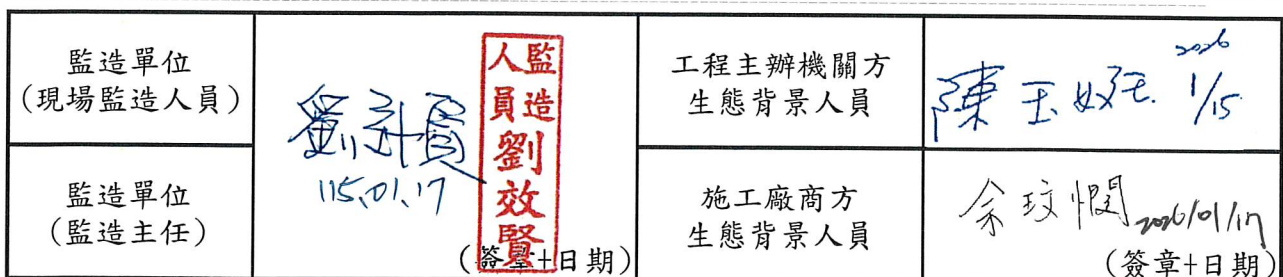 監造單位
(現場監造人員)
監造單位
(監造主任)
115.01.17
監造
人員
劉效賢
(簽章+日期)
工程主辦機關方
生態背景人員
陳玉
2026
1/15
施工廠商方
生態背景人員
余玟憫
2026/01/17
(簽章+日期)